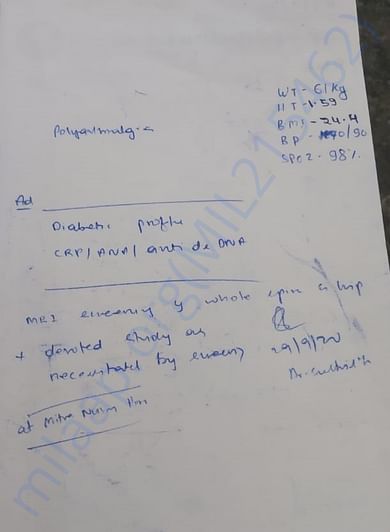 WT - 61 Kg
HT - 1.59
BMI - 24.4
BP - 170/90
SPO2 - 98%
Polyarthralgia
Ad
Diabetic profile
CRP / ANA / anti ds DNA
MRI screening of whole spine & hip
+ devoted study as
necessitated by screening
29/9/20
at Mitra
milaap.org(MIL215462)